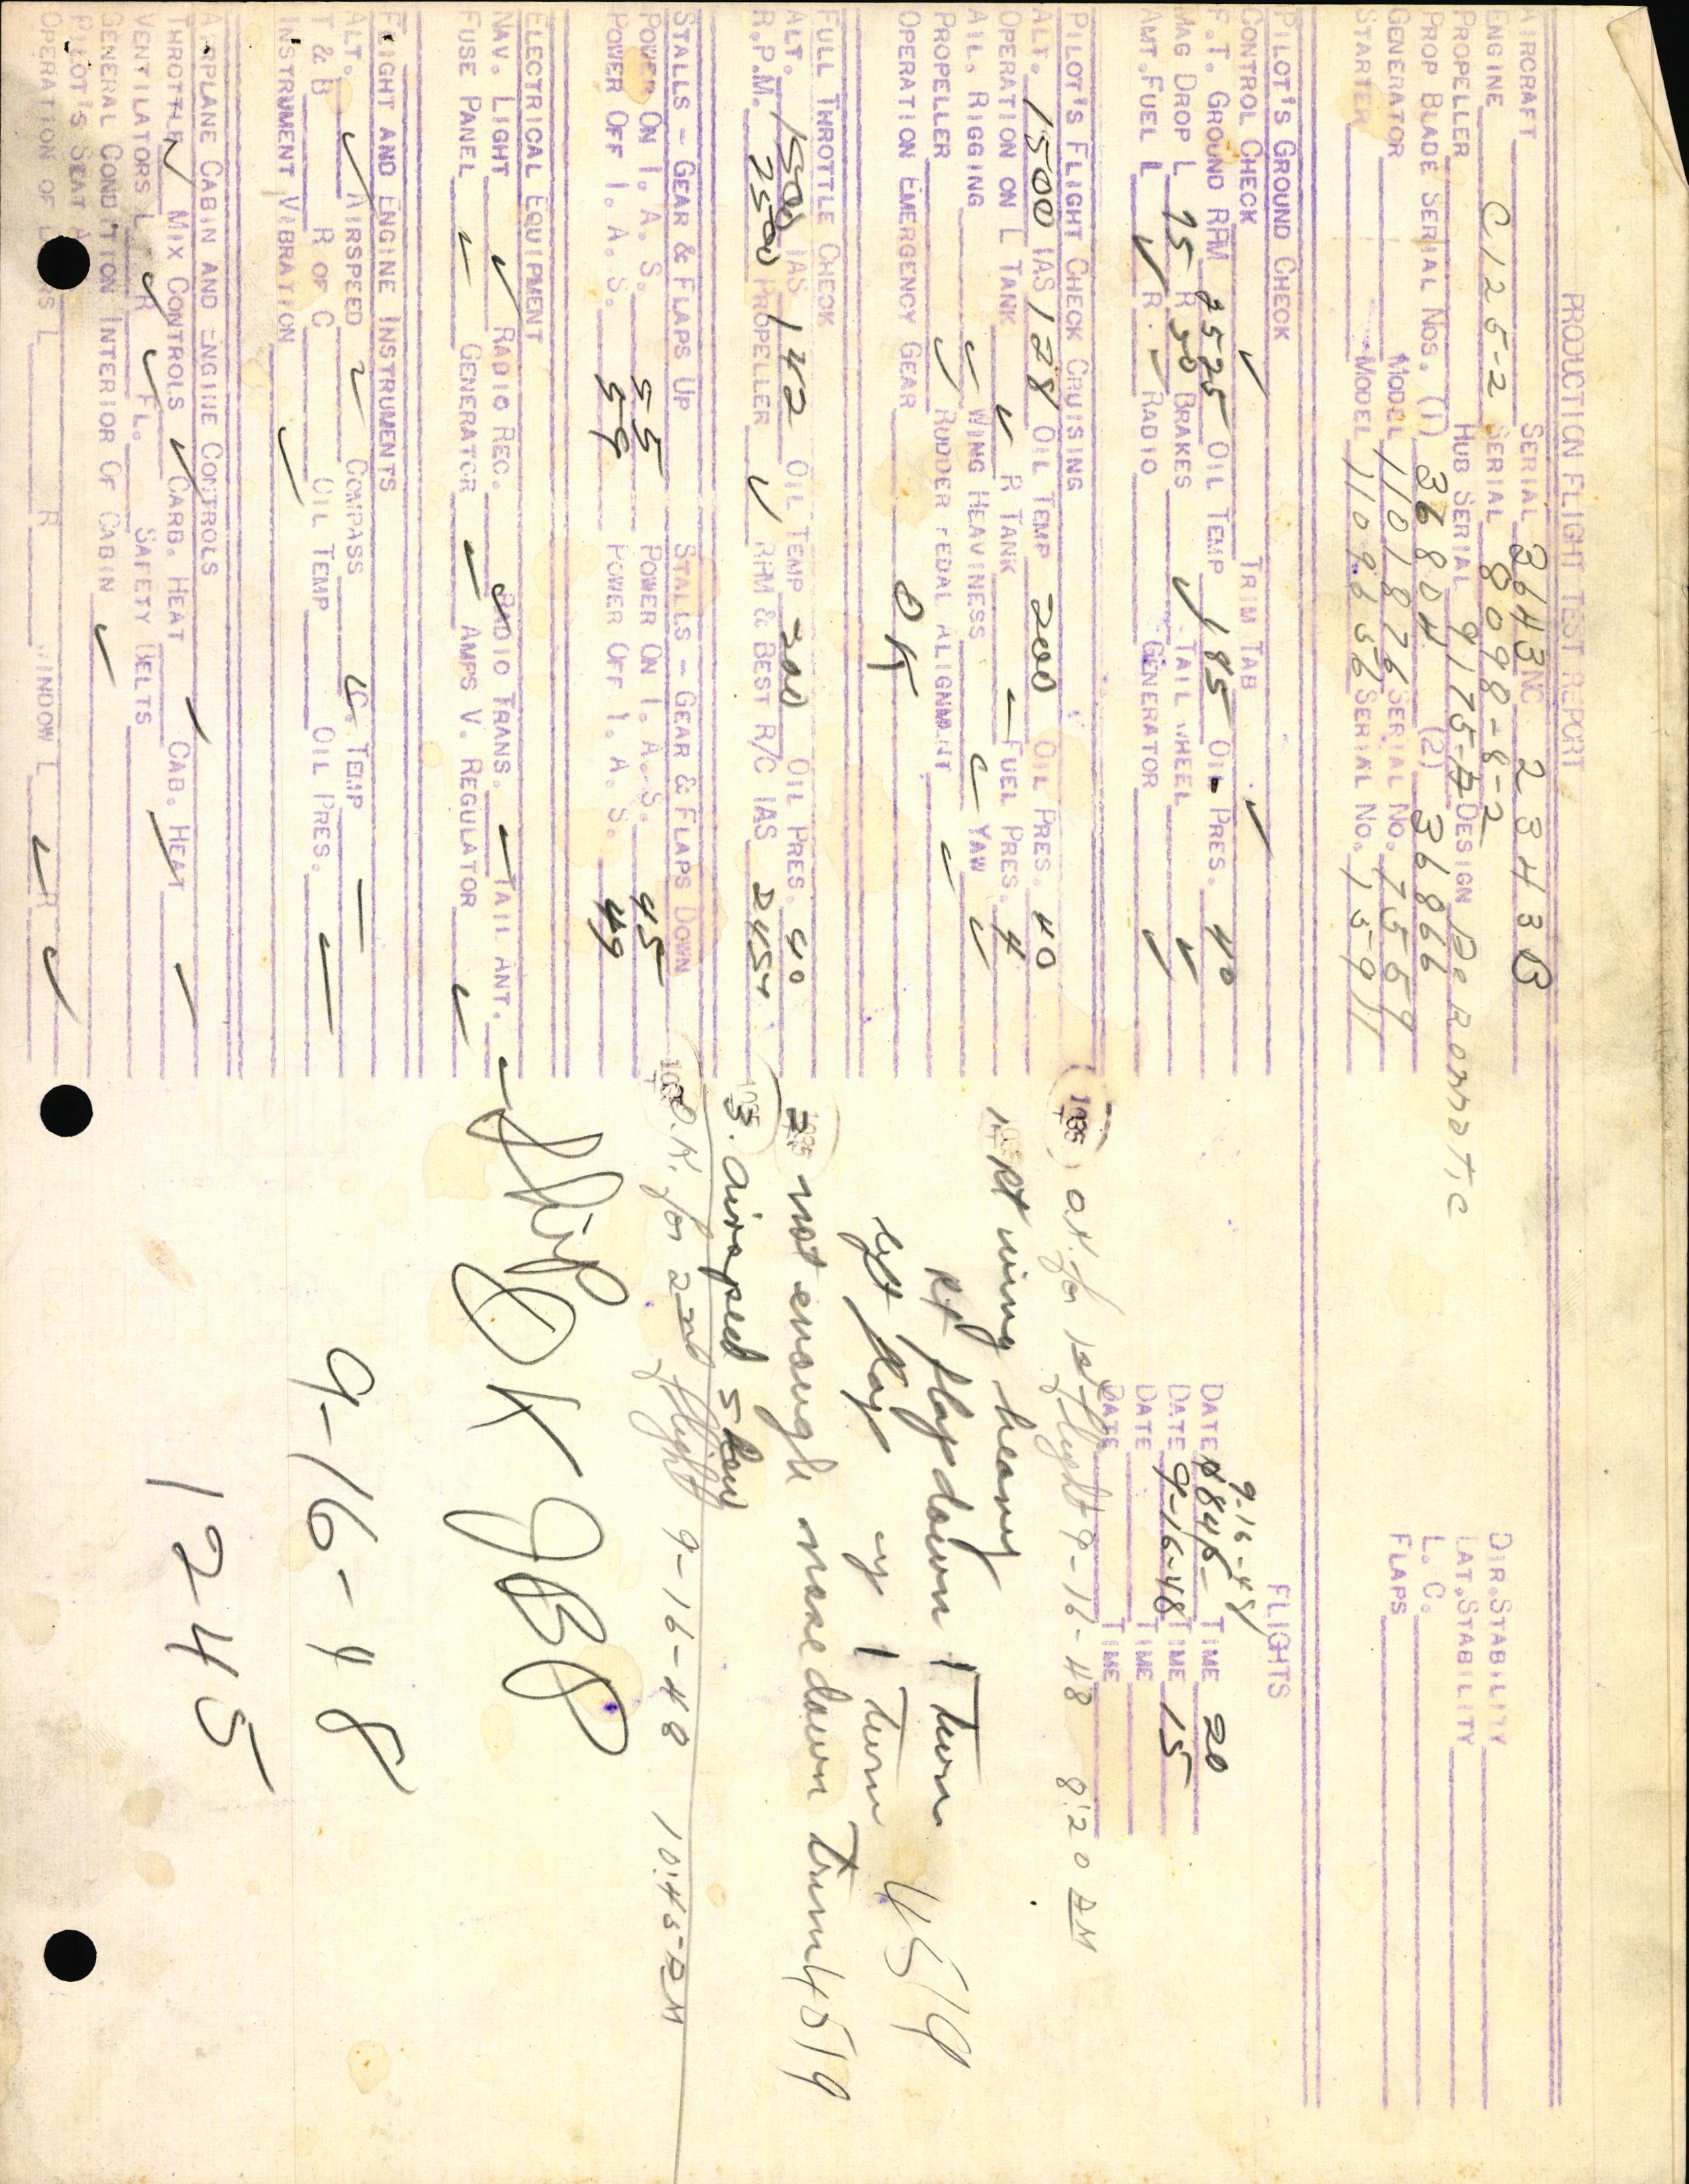 PRODUCTION FLIGHT TEST REPORT
AIRCRAFT SERIAL 2643 NC 2343B
ENGINE C125-2 SERIAL 8098-8-2
PROPELLER HUB SERIAL 9175-A DESIGN Aeromatic
PROP BLADE SERIAL NOS. (1) 36804 (2) 36866
GENERATOR MODEL 1101876 SERIAL NO. 75559
STARTER MODEL 1109656 SERIAL NO. 15911
DIR. STABILITY
LAT. STABILITY
L. C.
FLAPS
PILOT'S GROUND CHECK
CONTROL CHECK ✓ TRIM TAB ✓
F.T. GROUND RPM 2525 OIL TEMP 185 OIL PRES. 40
MAG DROP L 75 R 50 BRAKES ✓ TAIL WHEEL ✓
AMT. FUEL L ✓ R. ✓ RADIO GENERATOR ✓
FLIGHTS
9-16-48
DATE TIME 20
DATE 9-16-48 TIME 15
DATE TIME
DATE TIME
PILOT'S FLIGHT CHECK CRUISING
ALT. 1500 IAS 128 OIL TEMP 200 OIL PRES. 40
OPERATION ON L TANK ✓ R TANK FUEL PRES. 4
AIL. RIGGING ✓ WING HEAVINESS ✓ YAW ✓
PROPELLER ✓ RUDDER PEDAL ALIGNMENT ✓
OPERATION EMERGENCY GEAR OK
FULL THROTTLE CHECK
ALT. 1500 IAS 142 OIL TEMP 200 OIL PRES. 40
R.P.M. 2500 PROPELLER ✓ RPM & BEST R/C IAS 2450
STALLS - GEAR & FLAPS UP STALLS - GEAR & FLAPS DOWN
POWER ON I.A.S. 55 POWER ON I.A.S. 45
POWER OFF I.A.S. 59 POWER OFF I.A.S. 49
ELECTRICAL EQUIPMENT
NAV. LIGHT ✓ RADIO REC. ✓ RADIO TRANS. TAIL ANT.
FUSE PANEL ✓ GENERATOR AMPS V. REGULATOR ✓
FLIGHT AND ENGINE INSTRUMENTS
ALT. ✓ AIRSPEED ✓ COMPASS C. TEMP
T & B R OF C OIL TEMP OIL PRES.
INSTRUMENT VIBRATION ✓
AIRPLANE CABIN AND ENGINE CONTROLS
THROTTLE MIX CONTROLS ✓ CARB. HEAT CAB. HEAT
VENTILATORS L ✓ R ✓ FL. SAFETY BELTS
GENERAL CONDITION INTERIOR OF CABIN ✓
PILOT'S SEAT
OPERATION OF L R WINDOW L ✓ R ✓
1035 O.K. for 1st flight 9-16-48 8:20 AM
1. Rt wing heavy
Rt flap down 1 turn
left flap up 1 turn
4519
2 not enough nose down Trim 4519
3. airspeed slow
1035 O.K. for 2nd flight 9-16-48 10:45 AM
Ship
OK
9-16-48
1245